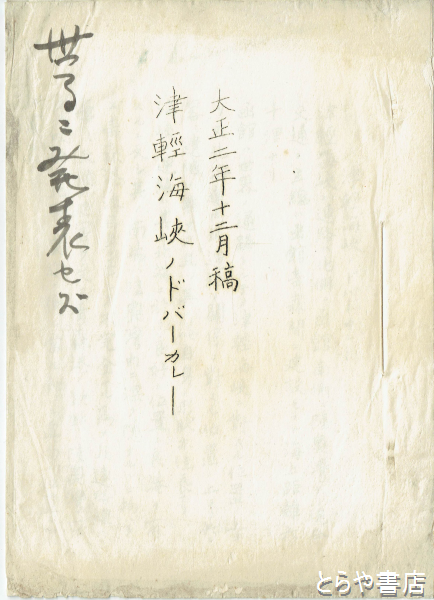 大正二年十二月稿
津輕海峽ノドバーカレー
発表セズ
とらや書店